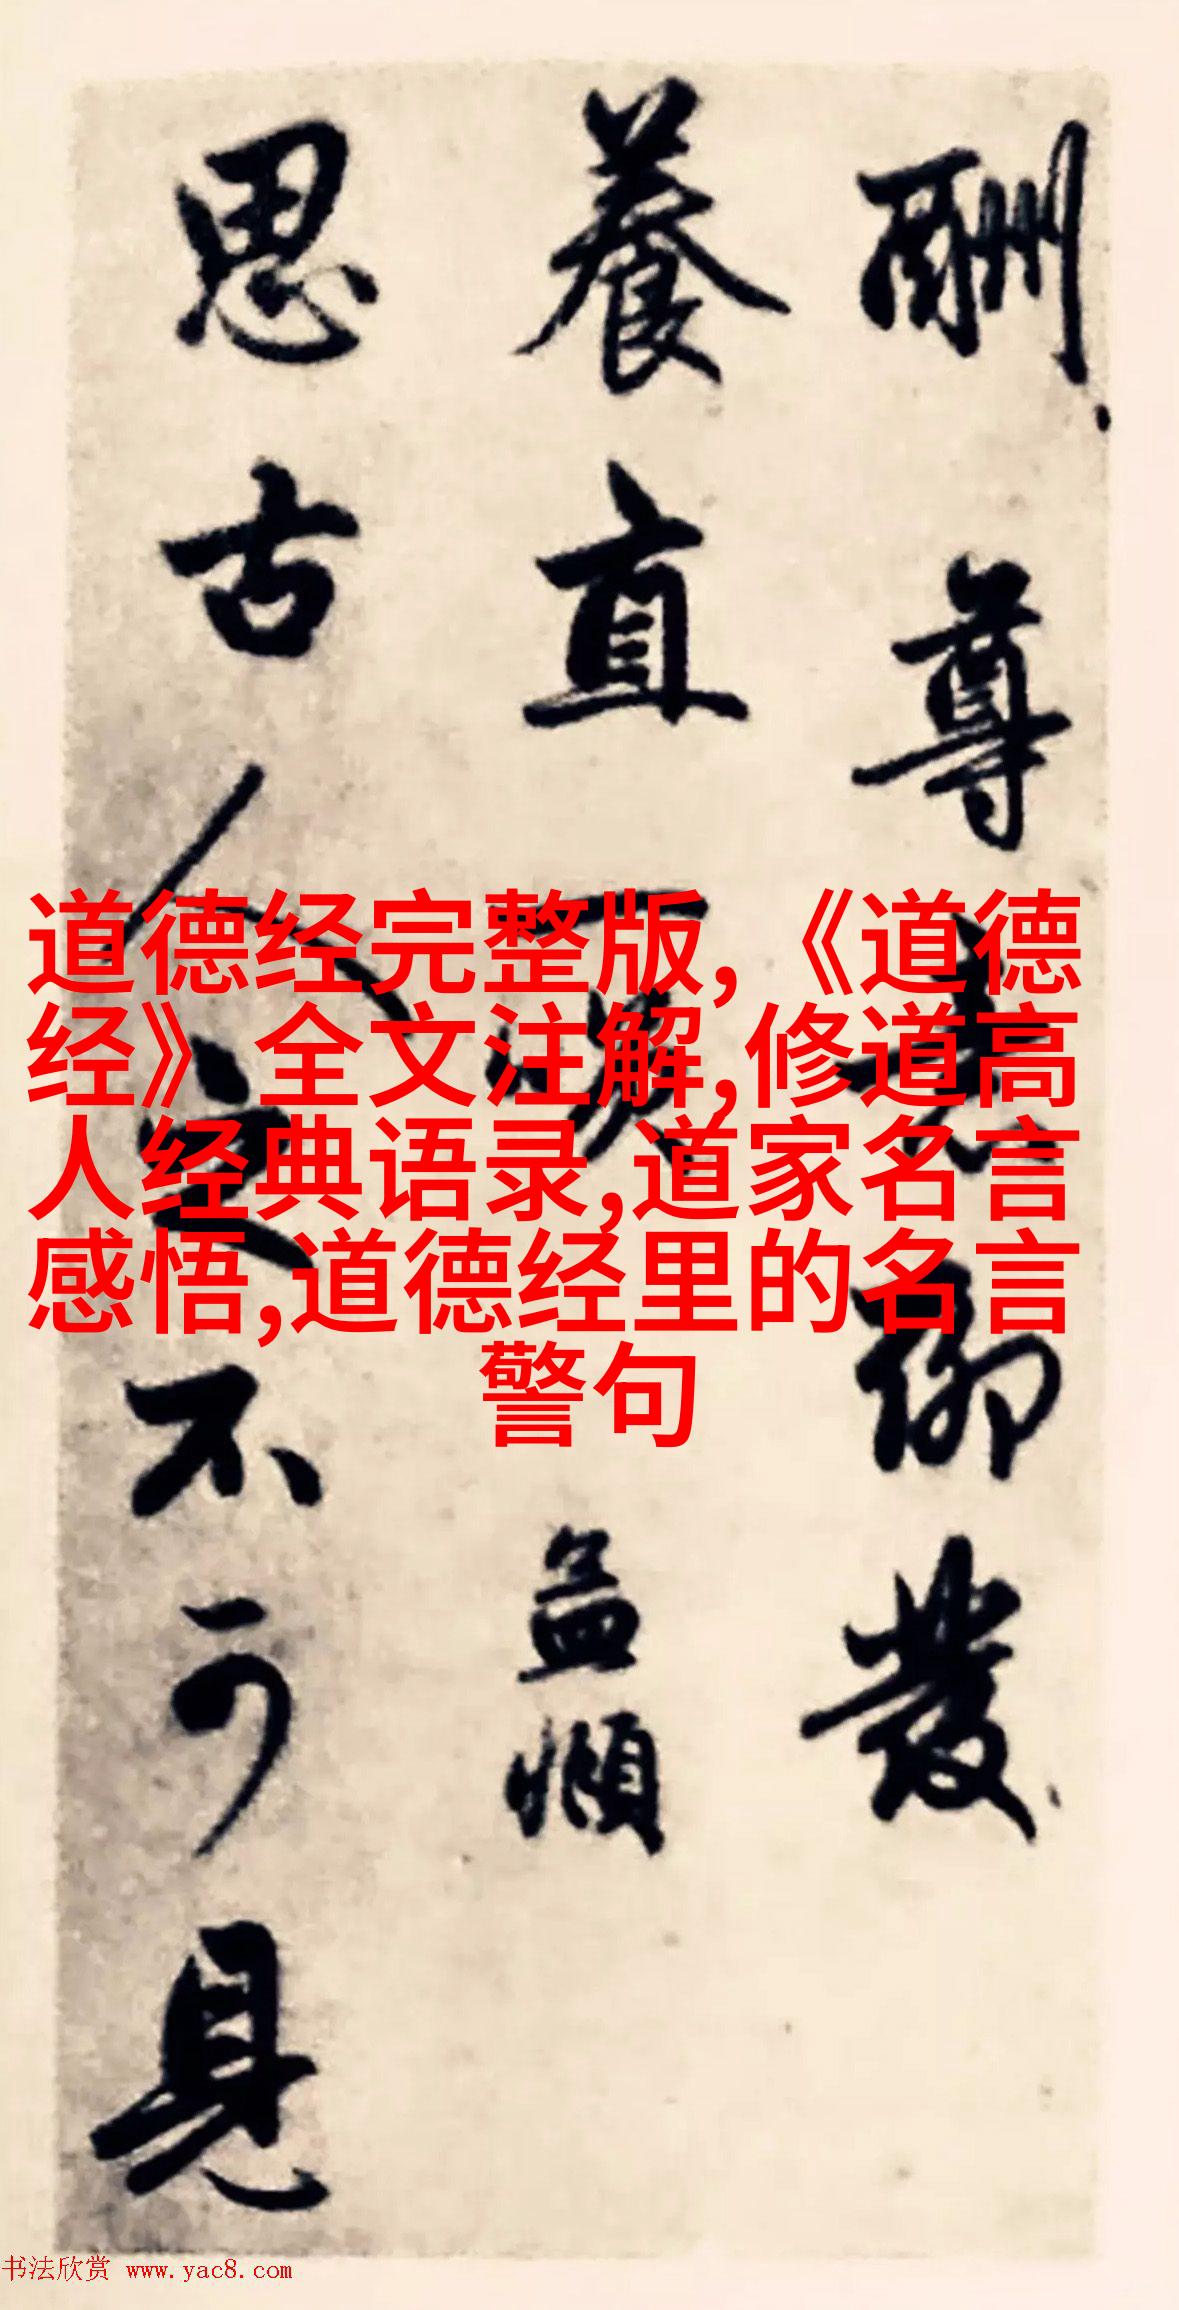 酬尊
聊發
養直
孟頫
思古人之不可見
道德经完整版,《道德
经》全文注解,修道高
人经典语录,道家名言
感悟,道德经里的名言
警句
书法欣赏 www.yac8.com